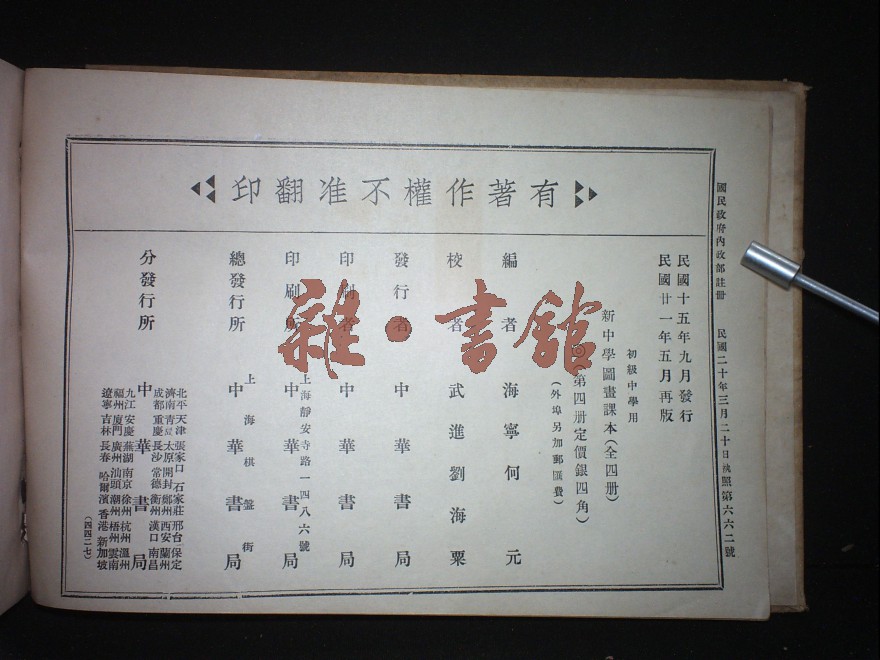 國民政府內政部註冊 民國二十年三月二十日執照第六六二號
有著作權不准翻印
民國十五年九月發行
民國廿一年五月再版
初級中學用
新中學圖畫課本(全四册)
◎(第四册定價銀四角)
(外埠另加郵匯費)
編者 海寧何元
校者 武進劉海粟
發行者 中華書局
印刷者 中華書局
上海靜安寺路一四八六號
印刷所 中華書局
上海棋盤街
總發行所 中華書局
分發行所 中華書局
北平 天津 張家口 石家莊 邢台 保定
濟南 青島 太原 開封 鄭州 西安 蘭州
成都 重慶 長沙 常德 衡州 漢口 南昌
九江 安慶 蕪湖 南京 徐州 杭州 溫州
福州 廈門 廣州 汕頭 潮州 梧州 雲南
遼寧 吉林 長春 哈爾濱 香港 新加坡
(四四二七)
雜·書館